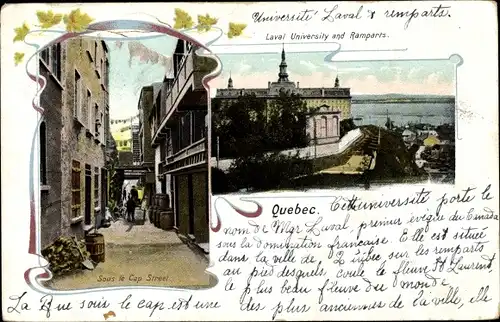 Université Laval & remparts.
Laval University and Ramparts.
Sous le Cap Street.
Quebec.
Cette université porte le
nom de Mgr Laval, premier évêque du Canada
sous la domination française. Elle est située
dans la ville de Québec sur les remparts
au pied desquels coule le fleuve St Laurent
le plus beau fleuve du monde
La Rue sous le cap est une des plus anciennes de la ville, elle